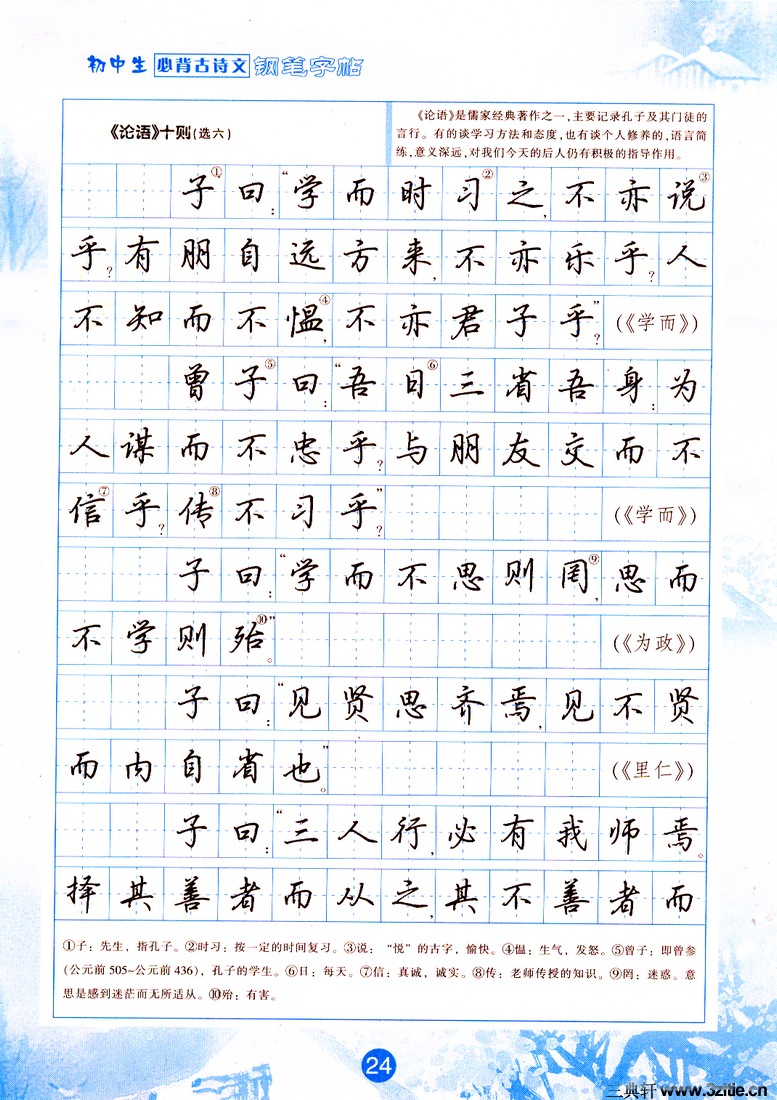 初中生必背古诗文钢笔字帖
《论语》十则(选六)
《论语》是儒家经典著作之一,主要记录孔子及其门徒的
言行。有的谈学习方法和态度,也有谈个人修养的,语言简
练、意义深远,对我们今天的后人仍有积极的指导作用。
子①曰:“学而时习②之,不亦说③
乎?有朋自远方来,不亦乐乎?人
不知而不愠④,不亦君子乎?”(《学而》)
曾子⑤曰:“吾日⑥三省吾身:为
人谋而不忠乎?与朋友交而不
信⑦乎?传⑧不习乎?”(《学而》)
子曰:“学而不思则罔⑨,思而
不学则殆⑩。”(《为政》)
子曰:“见贤思齐焉,见不贤
而内自省也。”(《里仁》)
子曰:“三人行,必有我师焉。
择其善者而从之,其不善者而
①子:先生,指孔子。②时习:按一定的时间复习。③说:“悦”的古字,愉快。④愠:生气,发怒。⑤曾子:即曾参
(公元前505~公元前436),孔子的学生。⑥日:每天。⑦信:真诚,诚实。⑧传:老师传授的知识。⑨罔:迷惑。意
思是感到迷茫而无所适从。⑩殆:有害。
24
三典轩 www.3zitie.cn